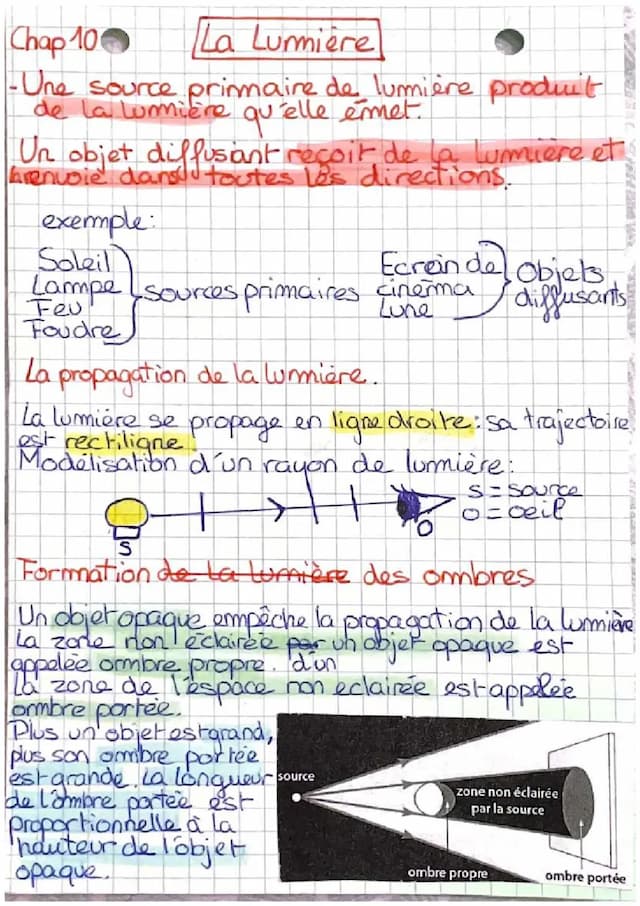 Chap 10
La Lumière
- Une source primaire de lumière produit
de la lumière qu'elle émet.
Un objet diffusant reçoit de la lumière et
la renvoie dans toutes les directions.
exemple:
Soleil
Lampe
Feu
Foudre
sources primaires
Ecrein de
cinéma
Lune
Objets
diffusants
La propagation de la lumière.
La lumière se propage en ligne droite: sa trajectoire
est rectiligne.
Modélisation d'un rayon de lumière:
S = source
O = oeil
S
O
Formation de la lumière des ombres
Un objet opaque empêche la propagation de la lumière
La zone non éclairée par un objet opaque est
appelée ombre propre. d'un
La zone de l'espace non eclairée est appelée
ombre portée.
Plus un objet est grand,
plus son ombre portée
est grande. La longueur
de l'ombre portée est
proportionnelle à la
hauteur de l'objet
opaque.
source
zone non éclairée
par la source
ombre propre
ombre portée